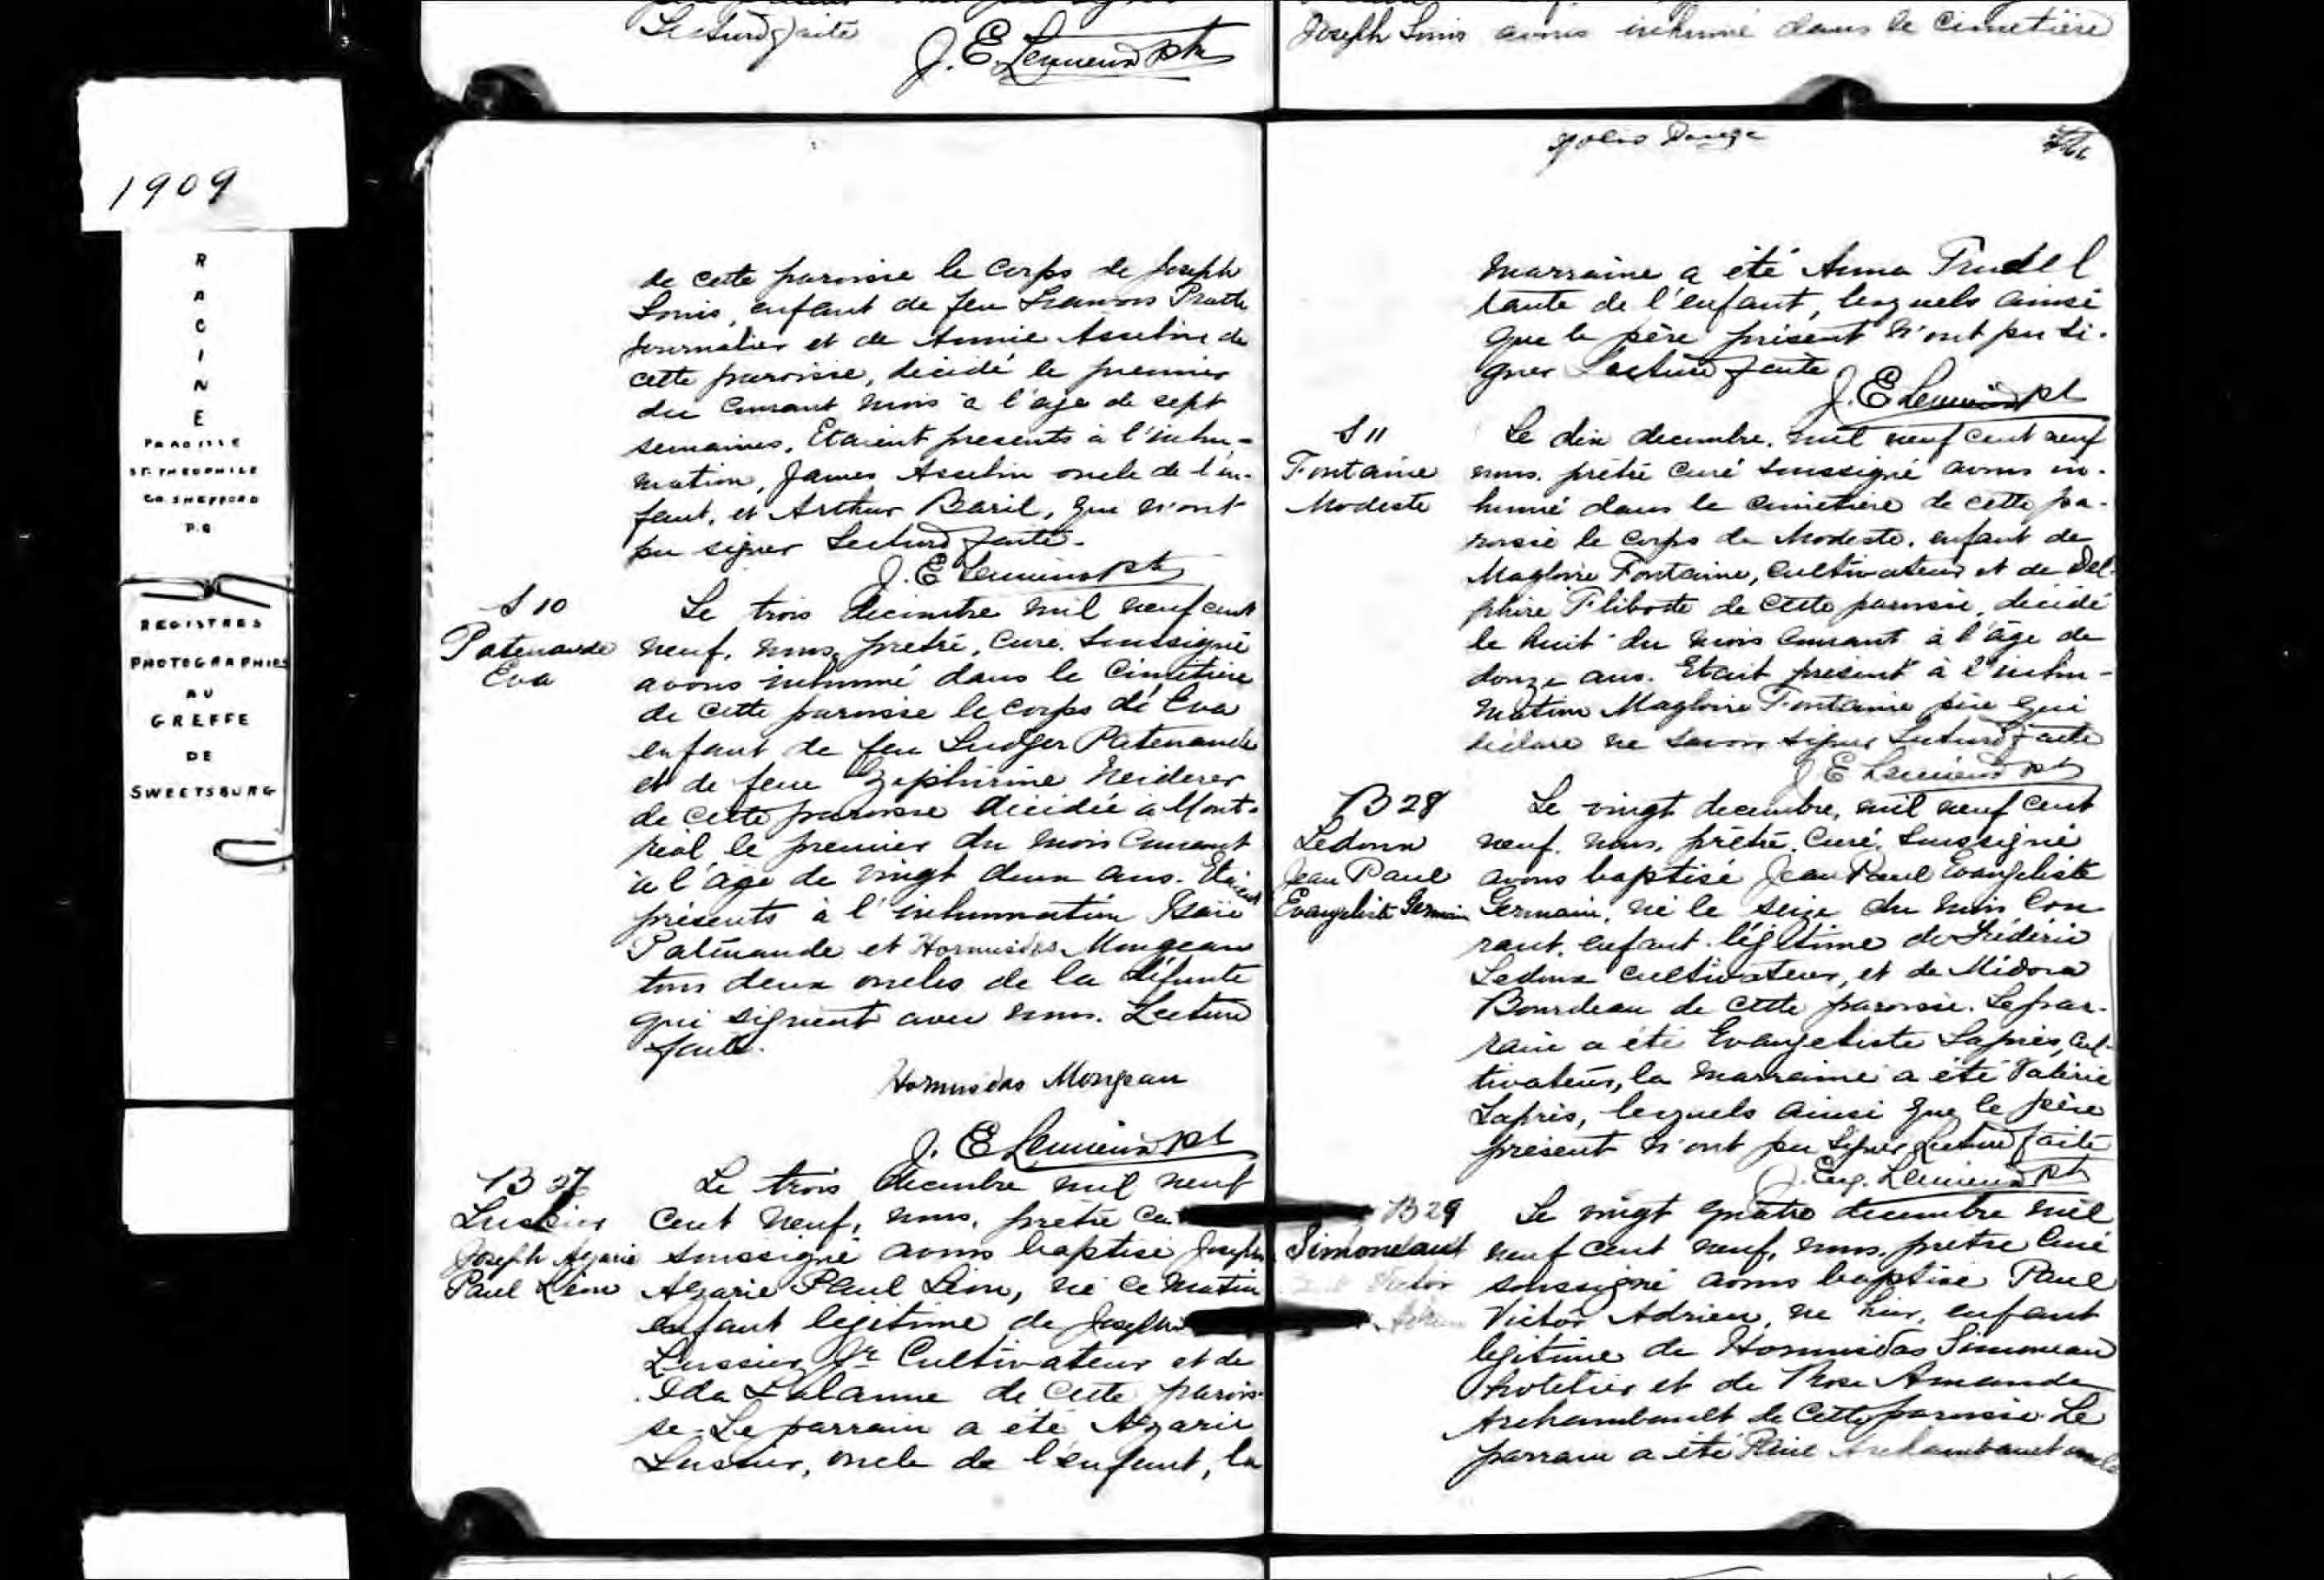 Lecture faite
J. E. Lemieux ptr
Joseph Louis avons inhumé dans le cimetière
1909
R
A
C
I
N
E
PAROISSE
ST. THEOPHILE
CO. SHEFFORD
P.Q
REGISTRES
PHOTOGRAPHIES
AU
GREFFE
DE
SWEETSBURG
de cette paroisse le corps de Joseph
Louis, enfant de feu
journalier et de Annie Asselin de
cette paroisse, décédé le premier
du courant mois à l'age de sept
semaines. Etaient presents à l'inhu-
mation, James Asselin oncle de l'en-
fant, et Arthur Baril, qui n'ont
pu signer Lecture faite.
J. E. Lemieux ptr
S 10
Patenaude
Eva
Le trois decembre mil neuf cent
neuf, nous, pretre, curé, soussigné
avons inhumé dans le cimetiere
de cette paroisse le corps de Eva
enfant de feu Ludger Patenaude
et de feue Zephirine Neiderer
de cette paroisse décédée à Mont-
réal le premier du mois courant
à l'age de vingt deux ans. Etaient
présents à l'inhummation Isaïe
Patenaude et Hormisdas Mongeau
tous deux oncles de la défunte
qui signent avec nous. Lecture
faite.
Hormisdas Mongeau
J. E. Lemieux pt
B 27
Lussier
Joseph Azarie
Paul Léon
Le trois decembre mil neuf
cent neuf, nous, prêtre
soussigné avons baptisé Joseph
Azarie Paul Léon, né ce matin
enfant légitime de Joseph
Lussier Jr. Cultivateur et de
Ida Lalanne de cette parois-
se. Le parrain a été Azarie
Lussier, oncle de l'enfant, la
marraine a été Anna Trudel
tante de l'enfant, lesquels ainsi
que le père présent n'ont pu si-
gner Lecture faite
J. E. Lemieux pt
S 11
Fontaine
Modeste
Le dix decembre, mil neuf cent neuf
nous, prêtre curé soussigné avons in-
humé dans le cimetiere de cette pa-
roisse le corps de Modeste, enfant de
Magloire Fontaine, cultivateur et de Del-
phine Fliboste de cette paroisse, décédé
le huit du mois courant à l'âge de
douze ans. Etait présent à l'inhu-
mation Magloire Fontaine père qui
déclare ne savoir signer Lecture faite
J E Lemieux pt
B 28
Ledoux
Jean Paul
Evangeliste Germain
Le vingt decembre, mil neuf cent
neuf, nous, prêtre, curé, soussigné
avons baptisé Jean Paul Evangeliste
Germain, né le seize du mois cou-
rant, enfant légitime de Frédéric
Ledoux cultivateur, et de Médora
Bourdeau de cette paroisse. Le par-
rain a été Evangeliste Laprès, cul-
tivateur, la marraine a été Valérie
Laprès, lesquels ainsi que le père
présent n'ont pu signer Lecture faite
J. Eug. Lemieux pt
B 29
Simoneau
Victor
Adrien
Le vingt quatre decembre mil
neuf cent neuf, nous, pretre curé
soussigné avons baptisé Paul
Victor Adrien, né hier, enfant
légitime de Hormisdas Simoneau
hotelier et de Rose Amanda
Archambault de cette paroisse. Le
parrain a été Archambault oncle